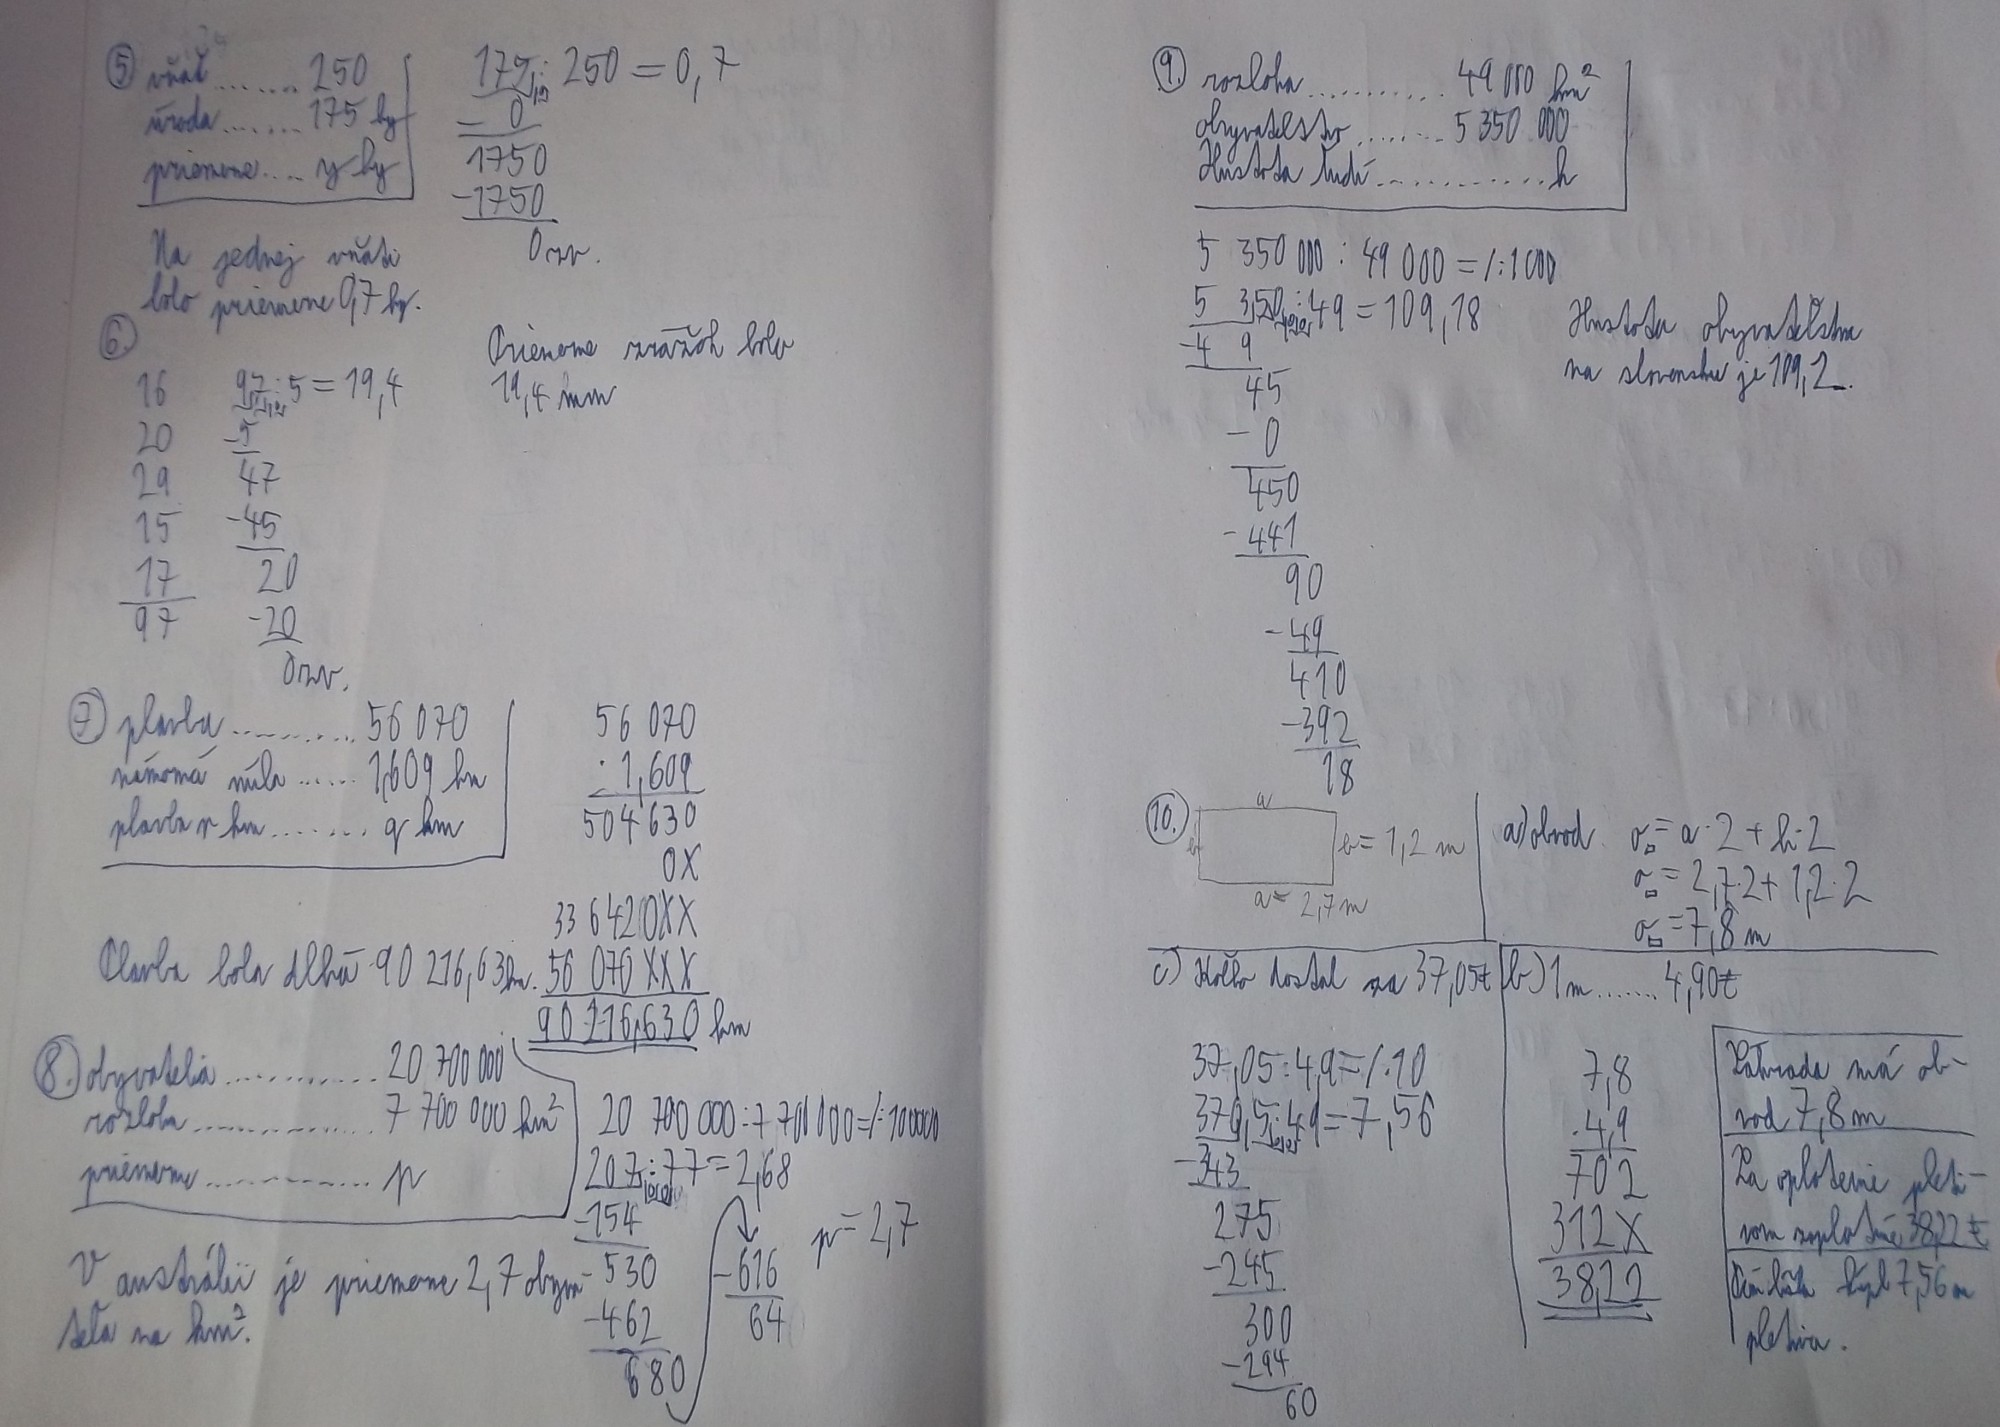 5
vňať ........ 250
úroda ....... 175 kg
priemerne .... y kg
175 : 250 = 0,7
- 0
1750
-1750
0 zv.
Na jednej vňati
bolo priemerne 0,7 kg.
6.
16
20
29
15
17
97
97 : 5 = 19,4
-5
47
-45
20
-20
0 zv.
Priemerne zrážok bolo
19,4 mm
7
plavba ......... 56 070
námorná míla ...... 1,609 km
plavba v km ....... q km
56 070
· 1,609
504 630
0X
33 6420XX
56 070 XXX
90 216,630 km
Plavba bola dlhá 90 216,63 km.
8.
obyvatelia ............ 20 700 000
rozloha ............... 7 700 000 km²
priemerne ............. p
20 700 000 : 7 700 000 = /: 100000
207 : 77 = 2,68
-154
530
-462
680
-616
64
p = 2,7
V austrálii je priemerne 2,7 obyva-
teľa na km².
9.
rozloha ........... 49 000 km²
obyvateľstvo ....... 5 350 000
Hustota ľudí ............. h
5 350 000 : 49 000 = /: 1000
5 350 : 49 = 109,18
-4 9
45
- 0
450
-441
90
-49
410
-392
18
Hustota obyvateľstva
na slovensku je 109,2.
10.
a
b
b = 1,2 m
a = 2,7 m
a) obvod o▭ = a · 2 + b · 2
o▭ = 2,7 · 2 + 1,2 · 2
o▭ = 7,8 m
c) Koľko dostal za 37,05€
37,05 : 4,9 = /· 10
370,5 : 49 = 7,56
-343
275
-245
300
-294
60
b) 1 m ....... 4,90€
7,8
· 4,9
702
312X
38,22
Záhrada má ob-
vod 7,8 m
Za oplotenie pleti-
vom zaplatíme 38,22 €
kúpil 7,56 m
pletiva.